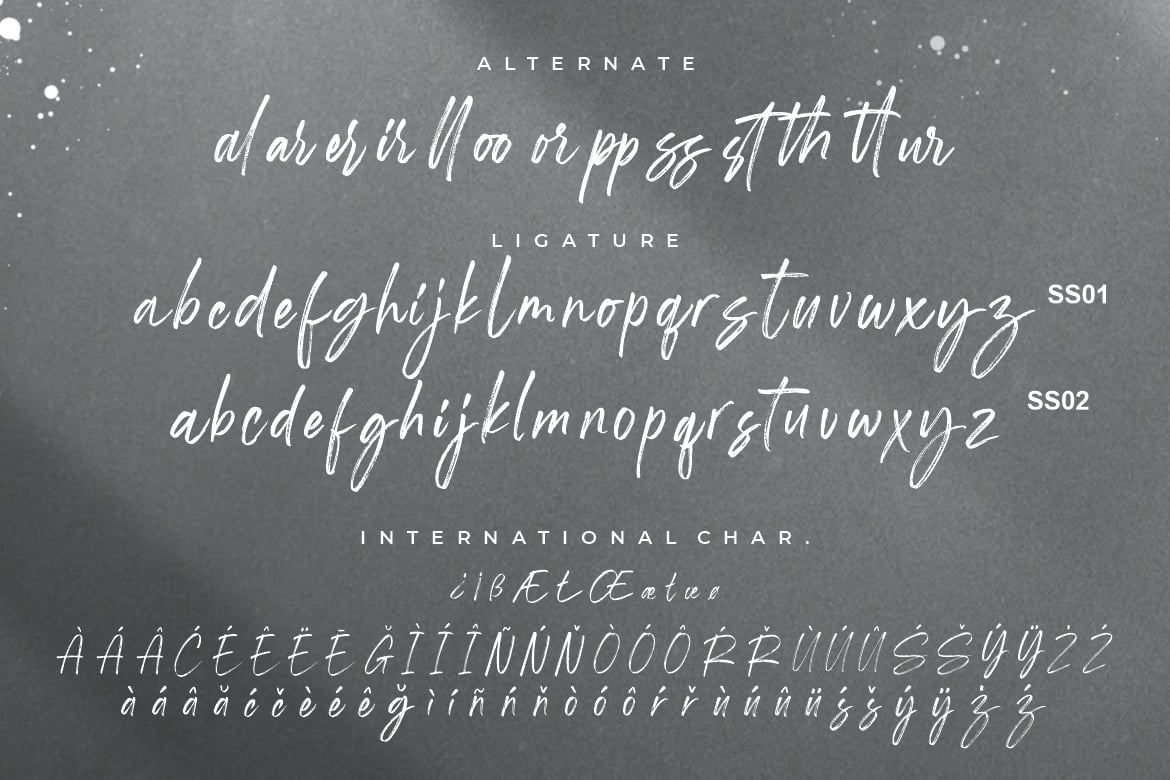 ALTERNATE
al ar er ir ll oo or pp ss st th tt ur
LIGATURE
abcdefghijklmnopqrstuvwxyz SS01
abcdefghijklmnopqrstuvwxyz SS02
INTERNATIONAL CHAR.
¿¡ßÆŁŒæłœø
ÀÁÂĆÉÊËĒĞÌÍÎÑŃŇÒÓÔŔŘÙÚÛŚŠÝŸŻŹ
àáâăćčèéêğìíñńňòóôŕřùúûüśšýÿżź